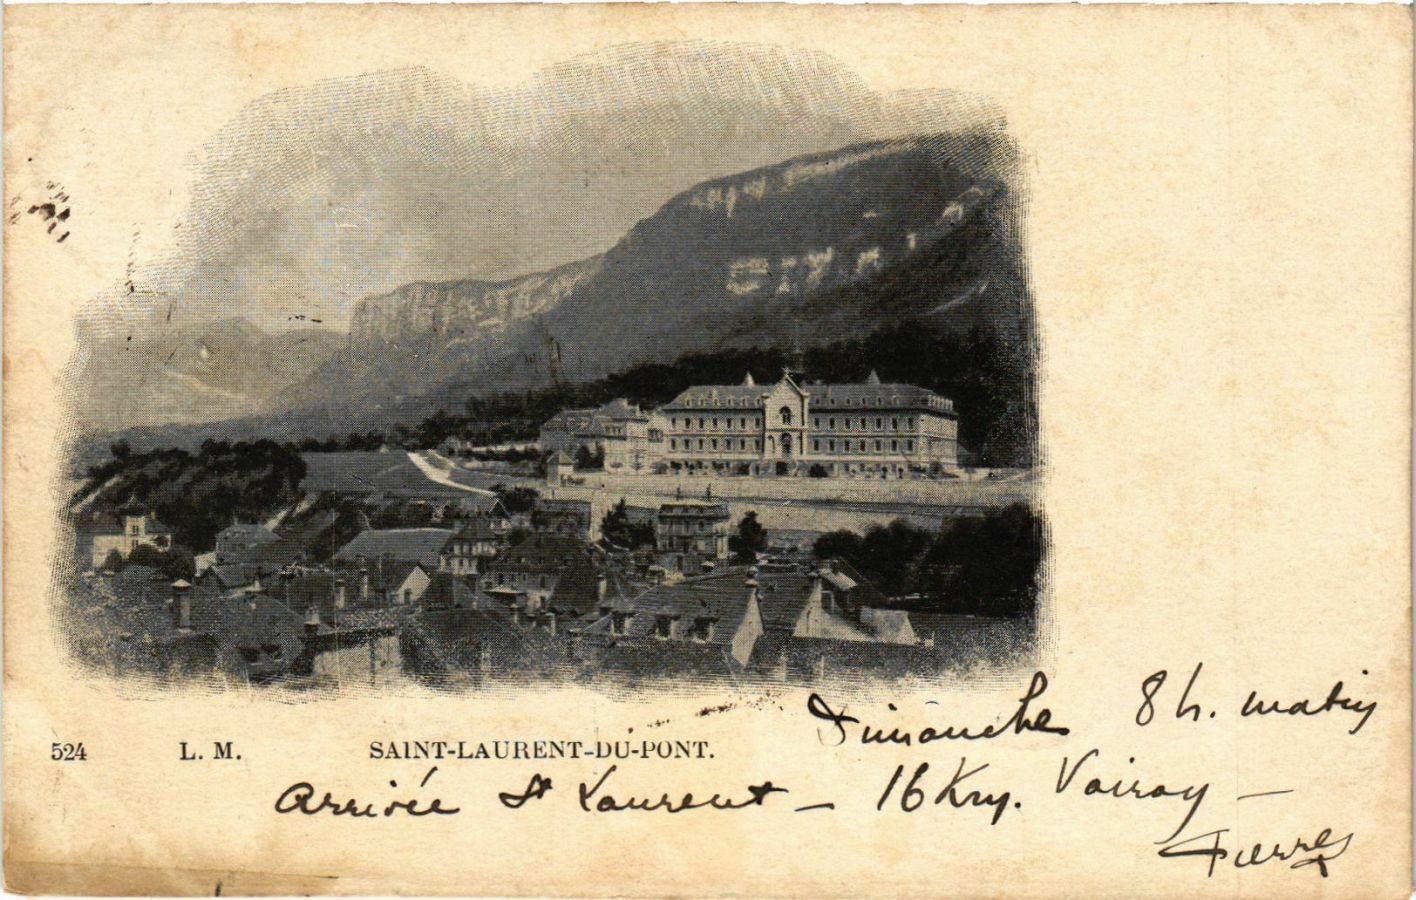 524 L. M. SAINT-LAURENT-DU-PONT.
Dimanche 8 h. matin
Arrivée St Laurent — 16 Km. Voiray —
Pierre